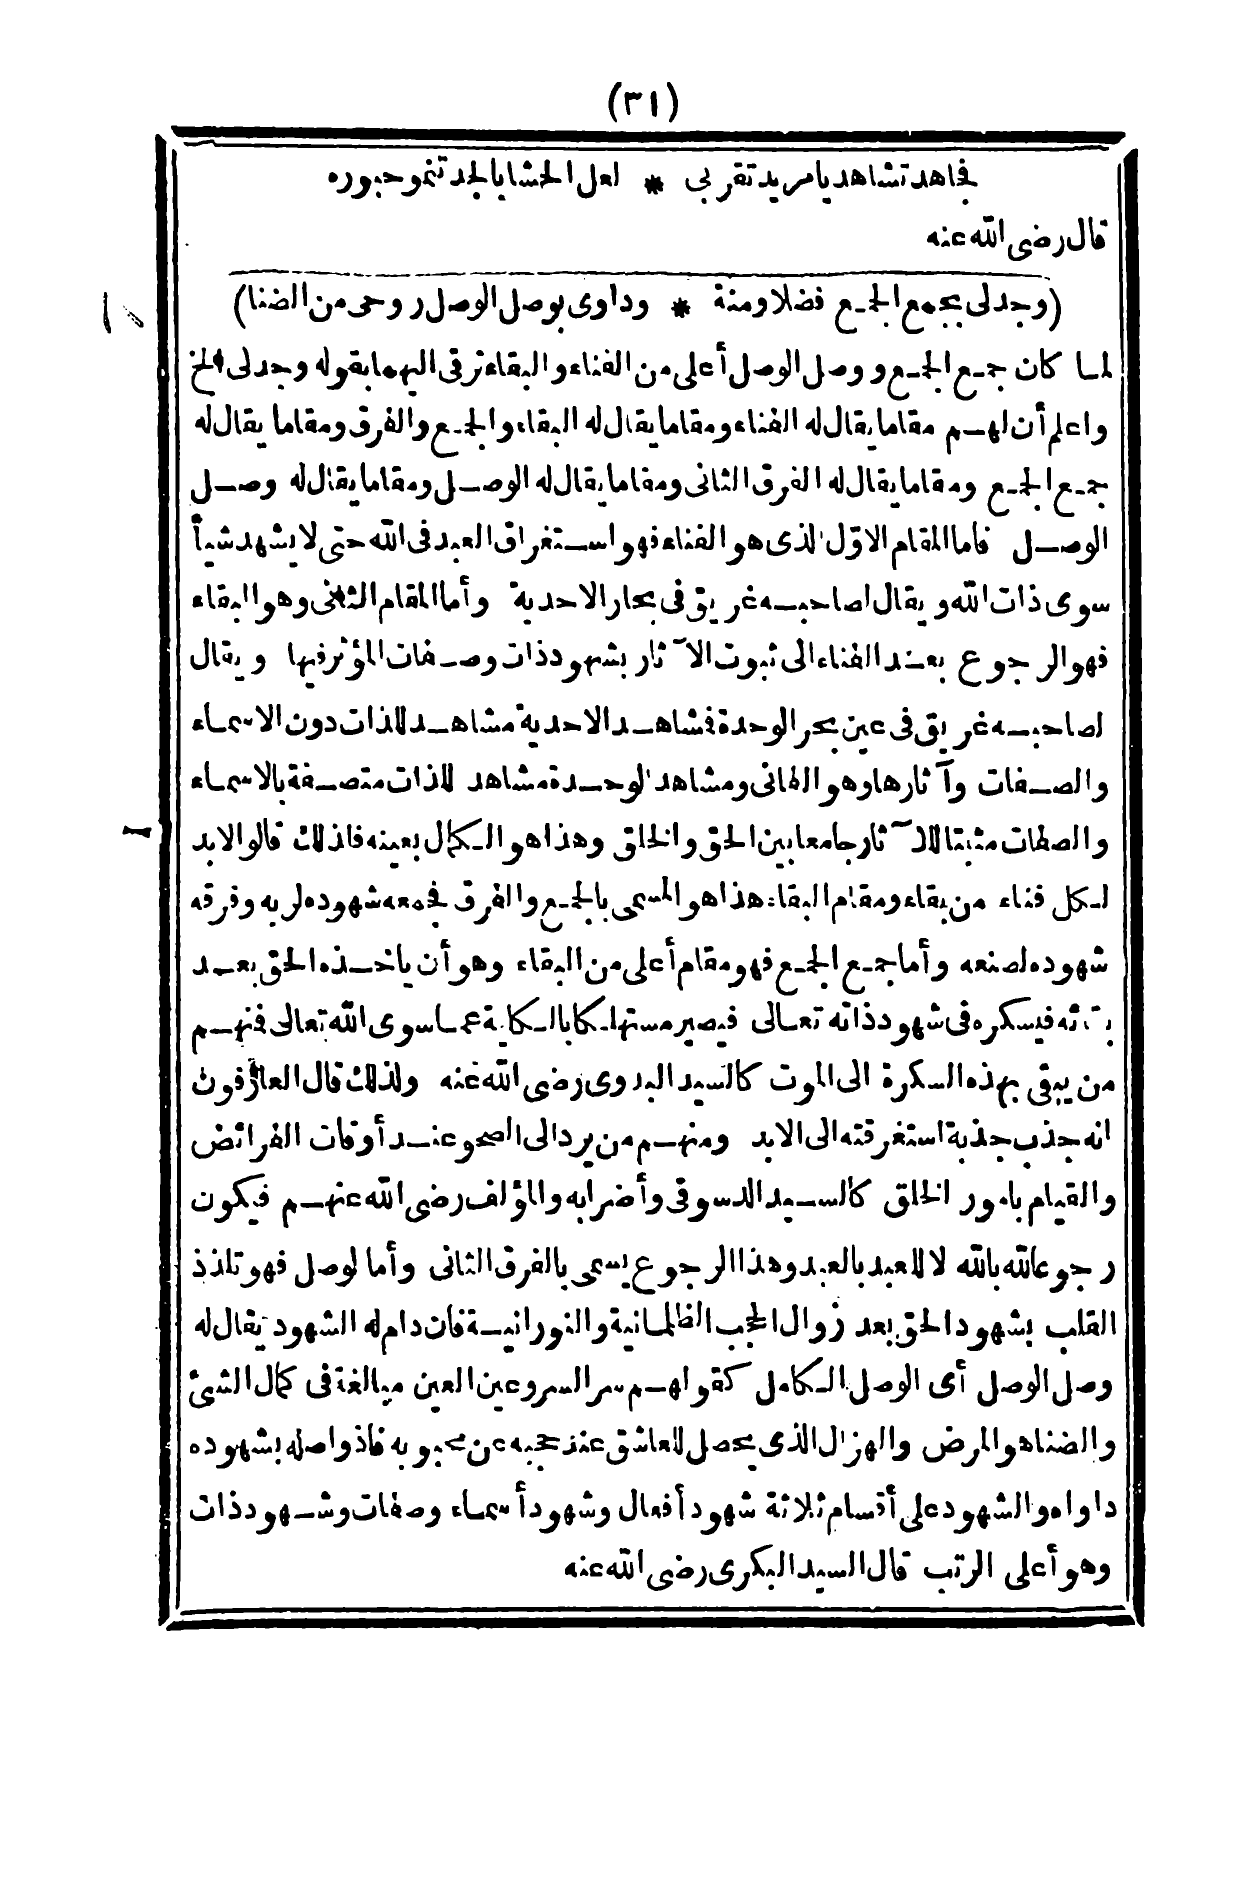 (٣١)
فجاهد تشاهد يا مريد تقربى * لعل الحشا بالجد تنمو حبوره
قال رضى الله عنه
(وجد لى بجمع الجمع فضلا ومنة * وداوى بوصل الوصل روحى من الضنا)
لما كان جمع الجمع ووصل الوصل أعلى من الفناء والبقاء ترقى اليهما بقوله وجد لى الخ
واعلم أن لهم مقاما يقال له الفناء ومقاما يقال له البقاء والجمع والفرق ومقاما يقال له
جمع الجمع ومقاما يقال له الفرق الثانى ومقاما يقال له الوصل ومقاما يقال له وصل
الوصل فاما المقام الاوّل الذى هو الفناء فهو استغراق العبد فى الله حتى لا يشهد شيأ
سوى ذات الله ويقال لصاحبه غريق فى بحار الاحدية وأما المقام الثانى وهو البقاء
فهو الرجوع بعد الفناء الى ثبوت الآثار بشهود ذات وصفات المؤثر فيها ويقال
لصاحبه غريق فى عين بحر الوحدة فشاهد الاحدية مشاهد للذات دون الاسماء
والصفات وآثارها وهو الفانى ومشاهد الوحدة مشاهد للذات متصفة بالاسماء
والصفات مثبتا للآثار جامعا بين الحق والخلق وهذا هو الكمال بعينه فلذلك قالوا لابد
لكل فناء من بقاء ومقام البقاء هذا هو المسمى بالجمع والفرق فجمعه شهوده لربه وفرقه
شهوده لصنعه وأما جمع الجمع فهو مقام أعلى من البقاء وهو أن ياخذه الحق بعد
بقائه فيسكره فى شهود ذاته تعالى فيصير مستهلكا بالكلية عما سوى الله تعالى فمنهم
من يبقى بهذه السكرة الى الموت كالسيد البدوى رضى الله عنه ولذلك قال العارفون
انه جذب جذبة استغرقته الى الابد ومنهم من يرد الى الصحو عند أوقات الفرائض
والقيام بامور الخلق كالسيد الدسوقى وأضرابه والمؤلف رضى الله عنهم فيكون
رجوعالله بالله لا للعبد بالعبد وهذا الرجوع يسمى بالفرق الثانى وأما لوصل فهو تلذذ
القلب بشهود الحق بعد زوال الحجب الظلمانية والنورانية فان دام له الشهود يقال له
وصل الوصل أى الوصل الكامل كقولهم سر السر وعين العين مبالغة فى كمال الشئ
والضنا هو المرض والهزال الذى يحصل للعاشق عند حجبه عن محبوبه فاذا واصله بشهوده
داواه والشهود على أقسام ثلاثة شهود أفعال وشهود أسماء وصفات وشهود ذات
وهو أعلى الرتب قال السيد البكرى رضى الله عنه